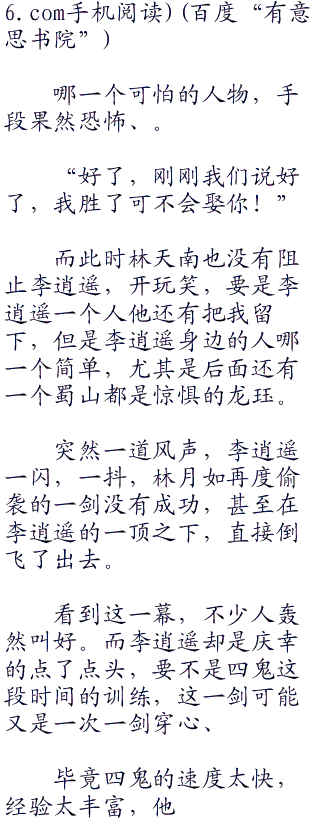 6.com手机阅读)(百度“有意
思书院”)
哪一个可怕的人物，手
段果然恐怖、。
“好了，刚刚我们说好
了，我胜了可不会娶你！”
而此时林天南也没有阻
止李逍遥，开玩笑，要是李
逍遥一个人他还有把我留
下，但是李逍遥身边的人哪
一个简单，尤其是后面还有
一个蜀山都是惊惧的龙珏。
突然一道风声，李逍遥
一闪，一抖，林月如再度偷
袭的一剑没有成功，甚至在
李逍遥的一顶之下，直接倒
飞了出去。
看到这一幕，不少人轰
然叫好。而李逍遥却是庆幸
的点了点头，要不是四鬼这
段时间的训练，这一剑可能
又是一次一剑穿心、
毕竟四鬼的速度太快，
经验太丰富，他